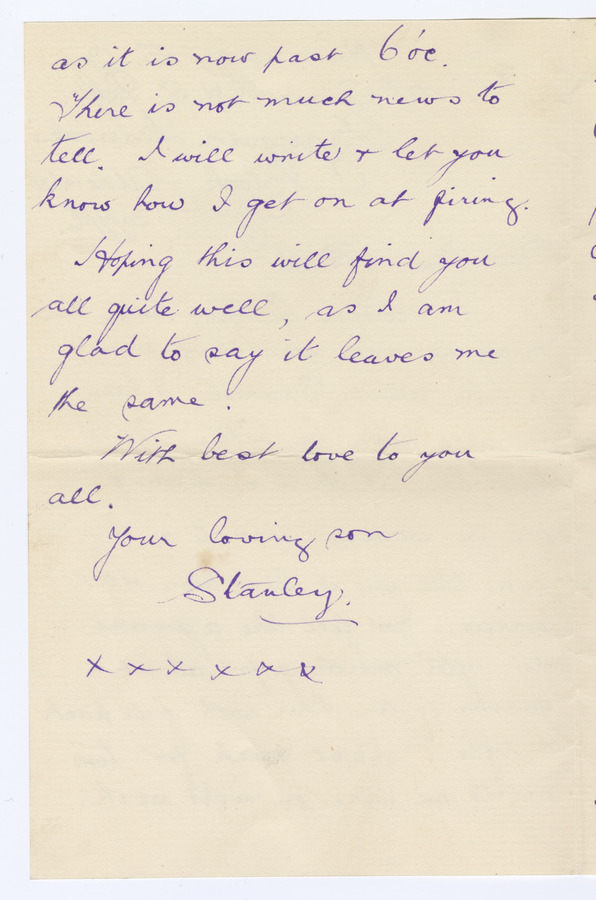 as it is now past 6 oc.
There is not much news to
tell. I will write + let you
know how I get on at firing.
Hoping this will find you
all quite well, as I am
glad to say it leaves me
the same.
With best love to you
all.
Your loving son
Stanley.
x x x x x x